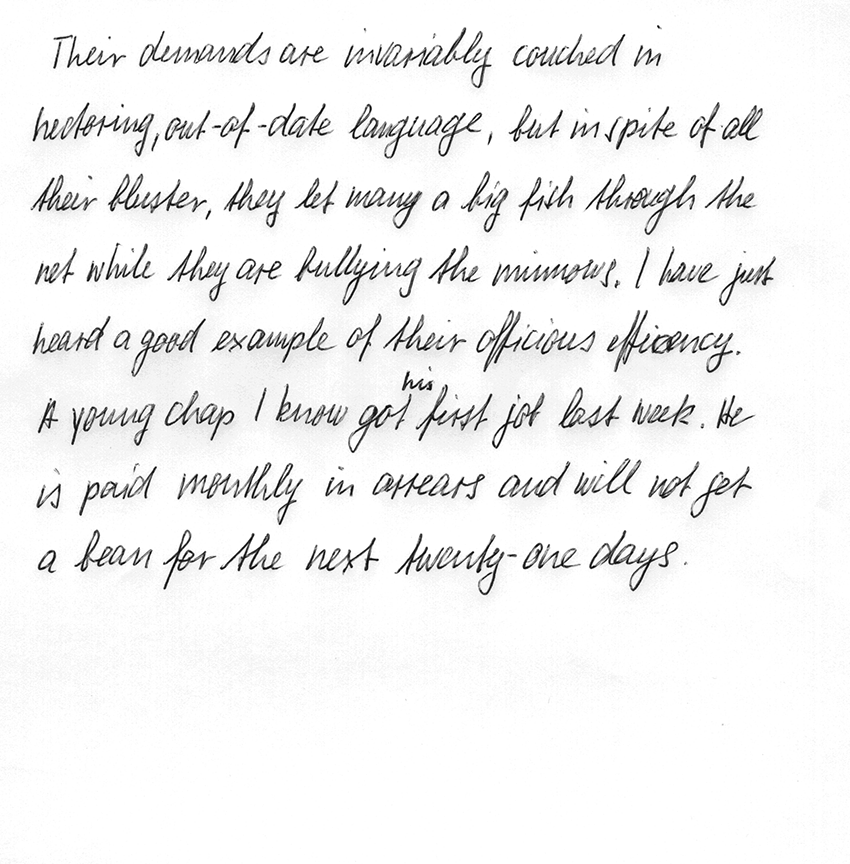 Their demands are invariably couched in
hectoring, out-of-date language, but in spite of all
their bluster, they let many a big fish through the
net while they are bullying the minnows. I have just
heard a good example of their officious efficency.
A young chap I know got his first job last week. He
is paid monthly in arrears and will not get
a bean for the next twenty-one days.